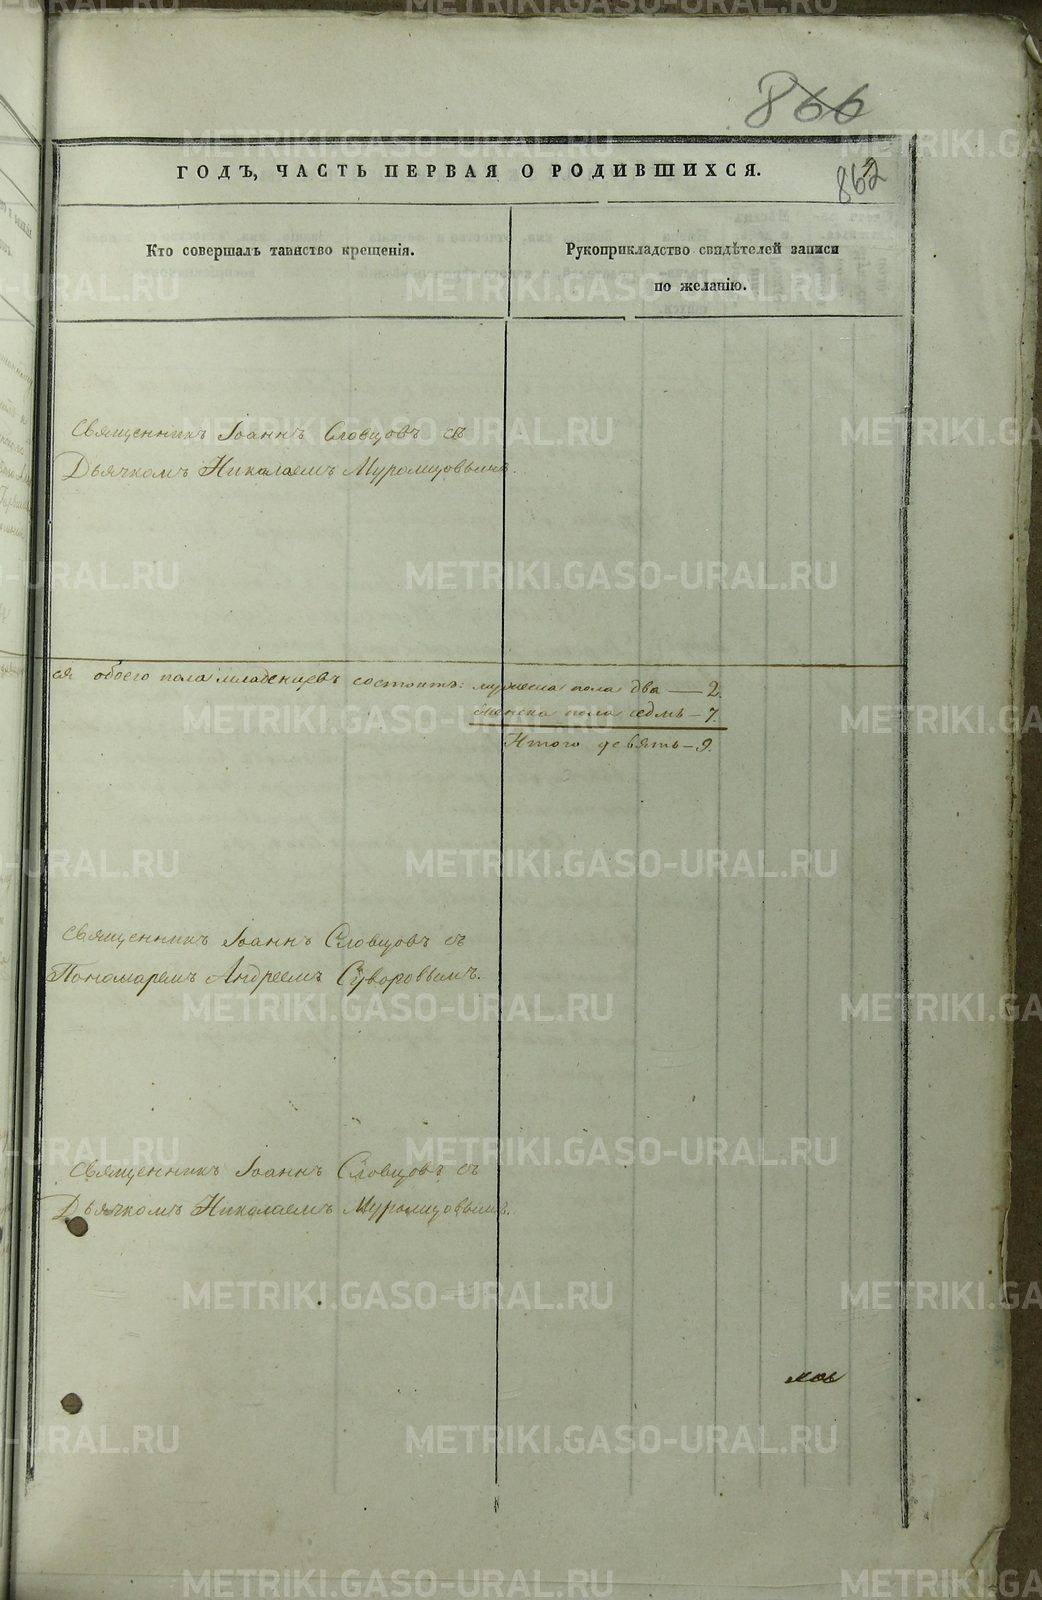 866
862
ГОДЪ, ЧАСТЬ ПЕРВАЯ О РОДИВШИХСЯ.
Кто совершалъ таинство крещенія.
Рукоприкладство свидѣтелей записи
по желанію.
Священникъ Іоаннъ Словцовъ съ
Дьячкомъ Николаемъ Муромцовымъ.
ся обоего пола младенцевъ состоитъ: мужеска пола два — 2.
женска пола седмь – 7.
Итого девять – 9.
Священникъ Іоаннъ Словцовъ съ
Пономаремъ Андреемъ Суворовымъ.
Священникъ Іоаннъ Словцовъ съ
Дьячкомъ Николаемъ Муромцовымъ.
METRIKI.GASO-URAL.RU